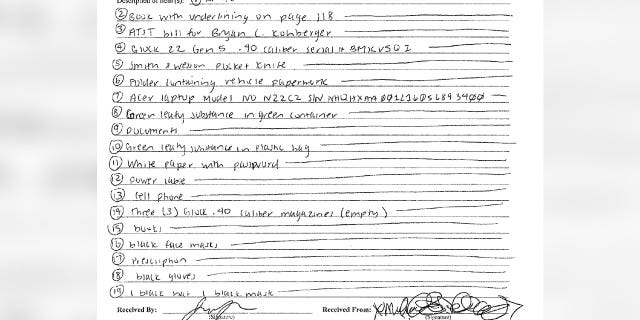 Description of Item(s): ①
② Book with underlining on page 118
③ AT&T bill for Bryan C. Kohberger
④ Glock 22 Gen 5 .40 caliber serial #
⑤ Smith & Wesson pocket knife
⑥ Folder containing vehicle paperwork
⑦ Acer laptop model NO N22C2 S/N
⑧ Green leafy substance in green container
⑨ Documents
⑩ Green leafy substance in plastic bag
⑪ White paper with password
⑫ Power cable
⑬ Cell phone
⑭ Three (3) Glock .40 caliber magazines (empty)
⑮ books
⑯ black face masks
⑰ Prescription
⑱ black gloves
⑲ 1 black hat 1 black mask
Received By: Received From:
(Signature) (Signature)